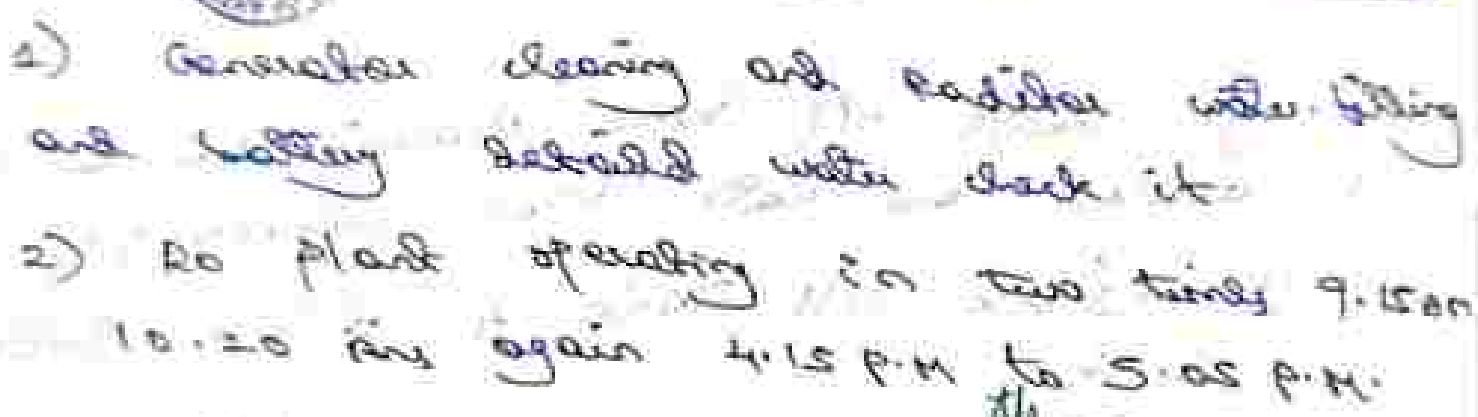 1) Generator cleaning and raditor water filling
and battery water check it
2) Ro plant operating in two times 9.15 AM
10.20 again 4.15 P.M to 5.05 P.M.